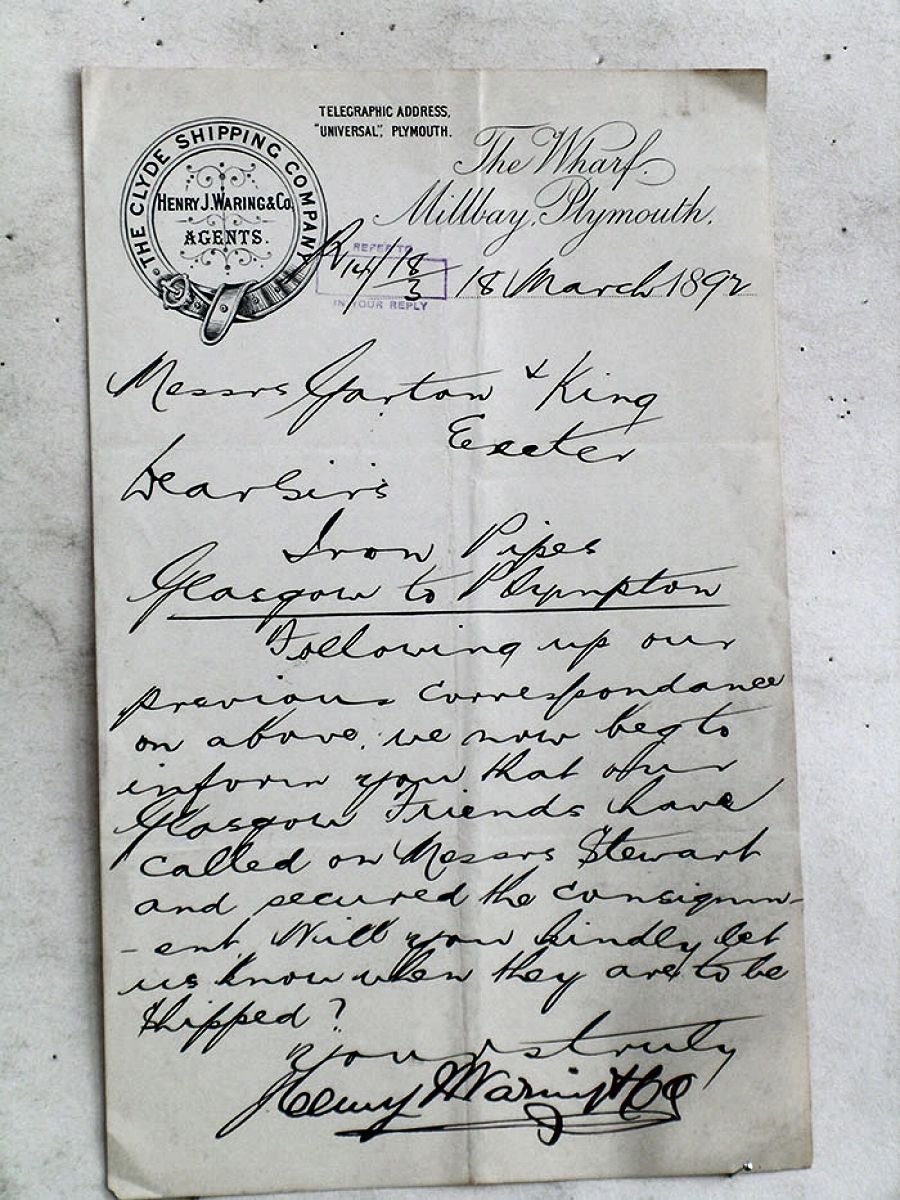 THE CLYDE SHIPPING COMPANY
HENRY J. WARING & Co.
AGENTS.
TELEGRAPHIC ADDRESS,
"UNIVERSAL", PLYMOUTH.
The Wharf.
Millbay, Plymouth.
REFER TO
R 14/18/3
IN YOUR REPLY
18 March 1892
Messrs Garton & King
Exeter
Dear Sirs
Iron Pipes
Glasgow to Plympton
Following up our
previous correspondance
on above, we now beg to
inform you that our
Glasgow Friends have
called on Messrs Stewart
and secured the consignm-
-ent. Will you kindly let
us know when they are to be
shipped?
Yours truly
Henry J Waring & Co